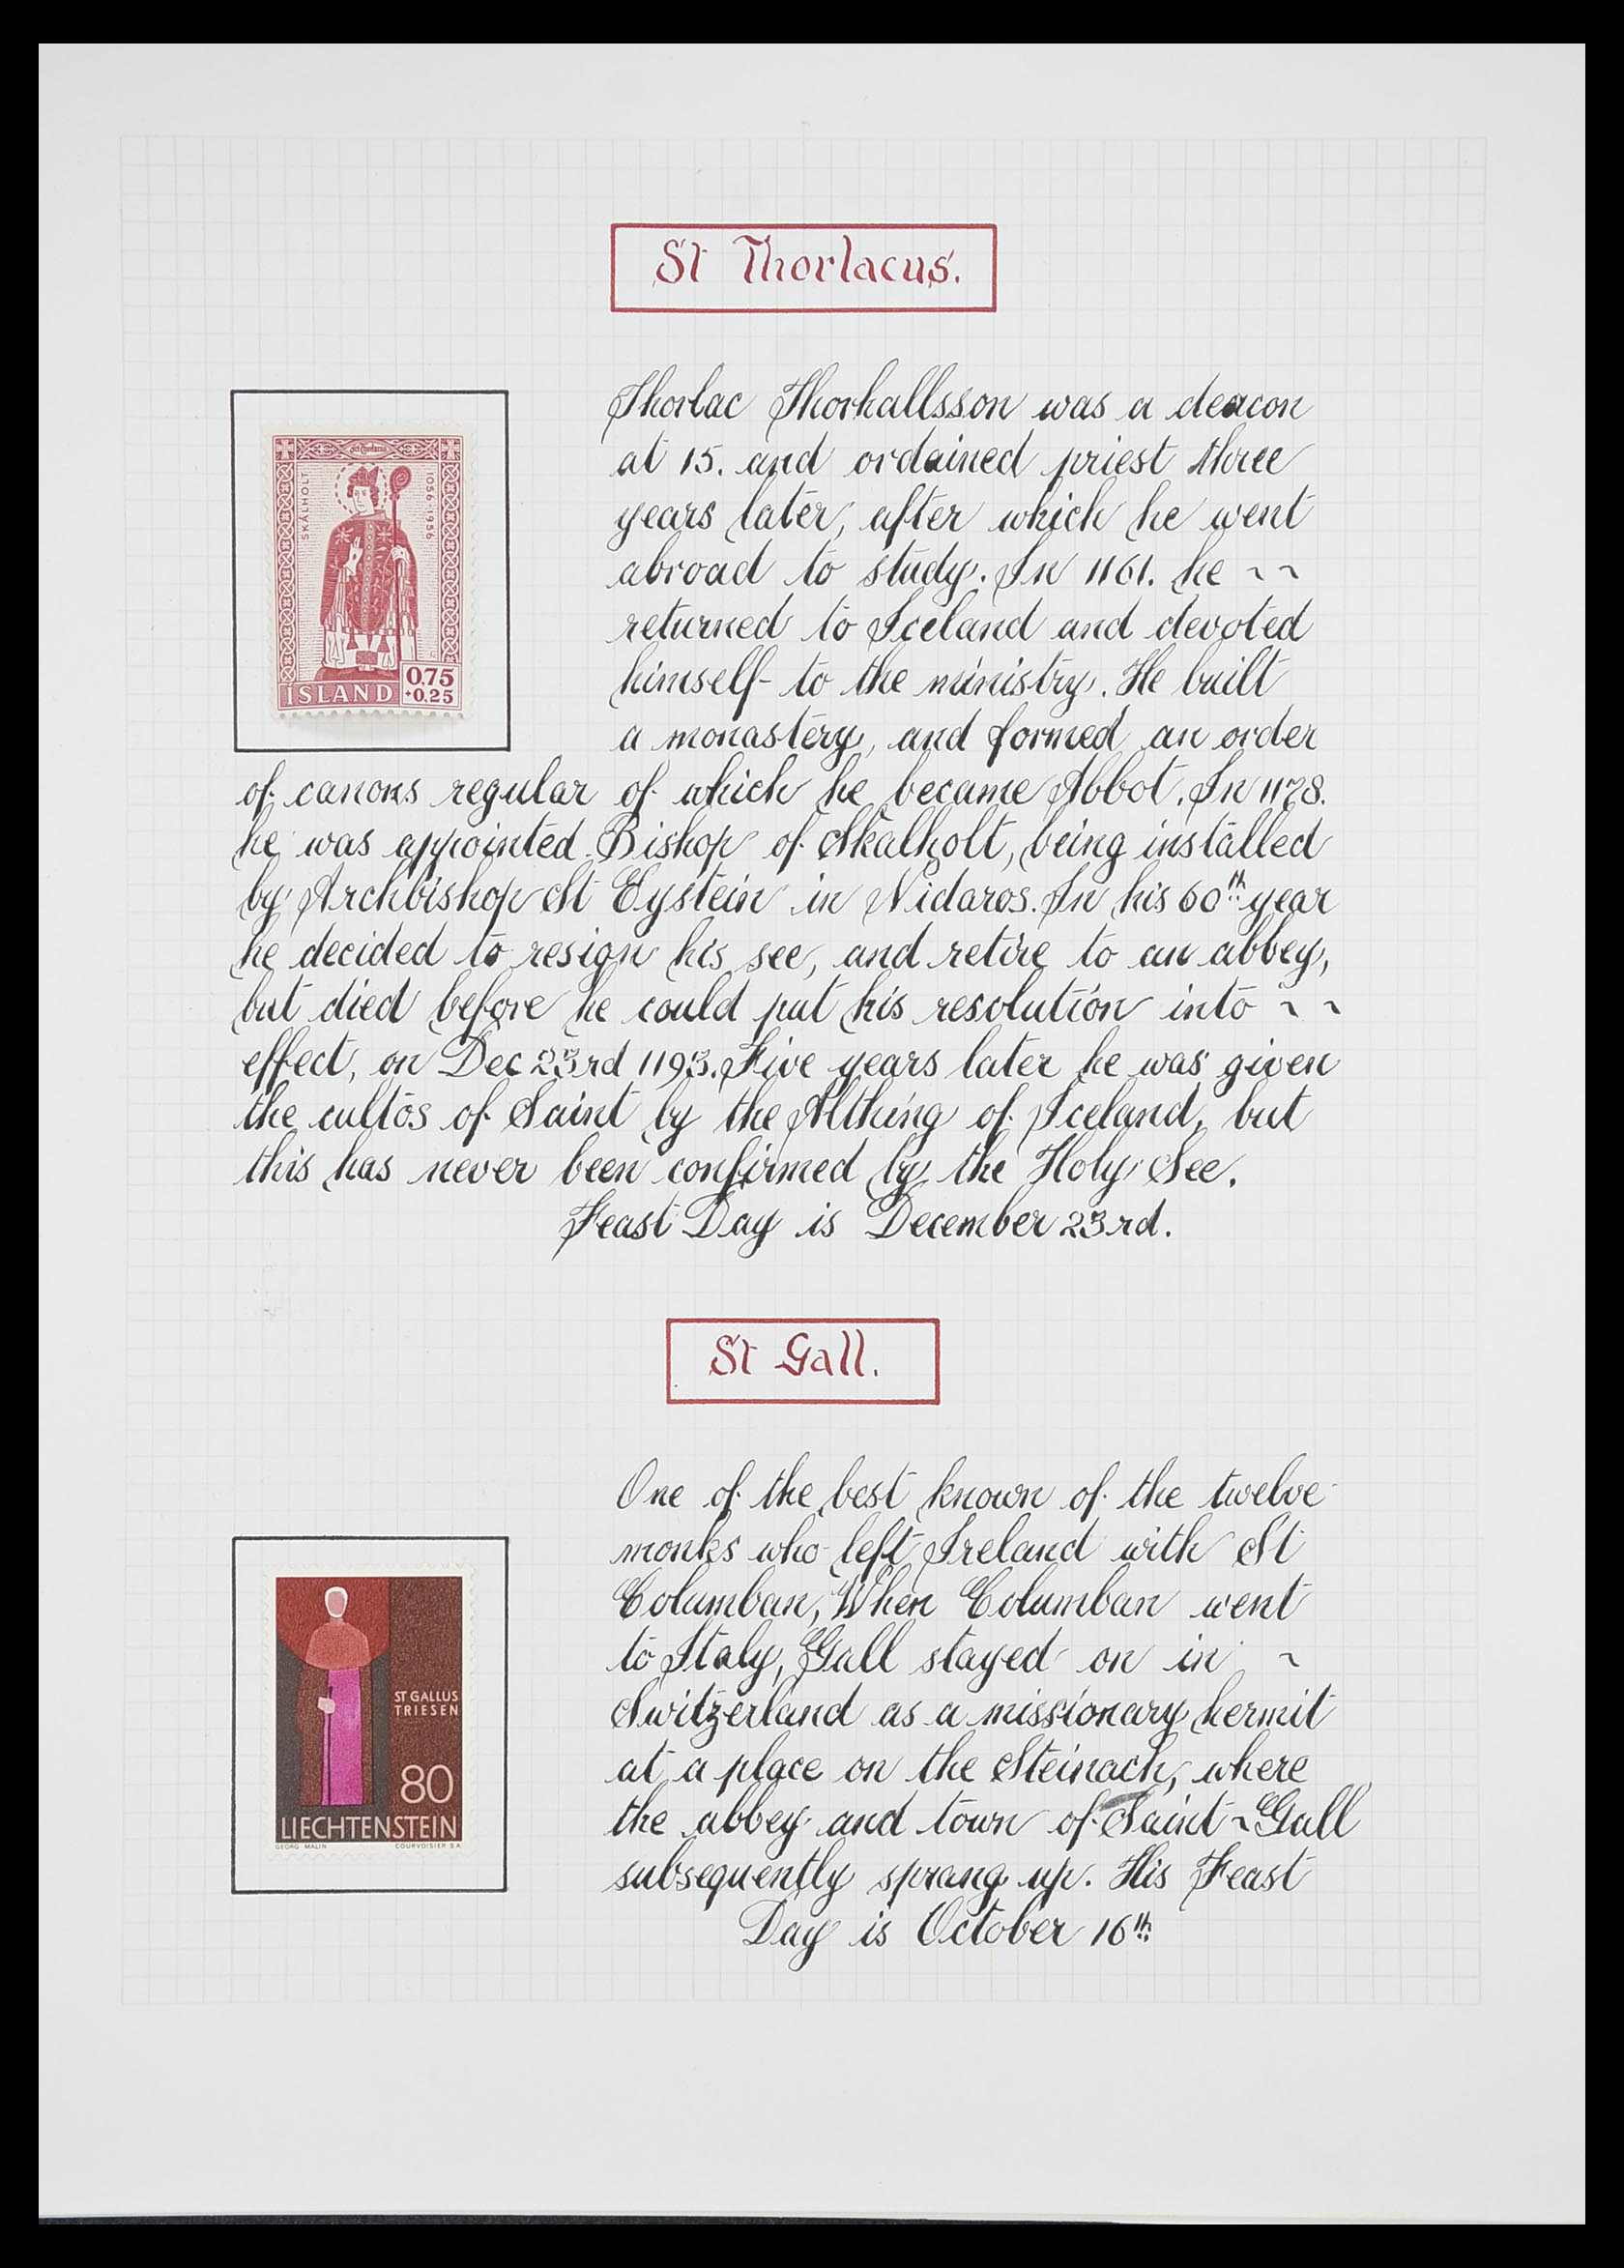 St Thorlacus.
Thorlac Thorhallsson was a deacon
at 15. and ordained priest three
years later, after which he went
abroad to study. In 1161. he ~ ~
returned to Iceland and devoted
himself to the ministry. He built
a monastery, and formed an order
of canons regular of which he became Abbot. In 1178.
he was appointed Bishop of Skalholt, being installed
by Archbishop St Eystein in Nidaros. In his 60th year
he decided to resign his see, and retire to an abbey,
but died before he could put his resolution into ~ ~
effect, on Dec 23rd 1193. Five years later he was given
the cultos of Saint by the Althing of Iceland, but
this has never been confirmed by the Holy See.
Feast Day is December 23rd.
SKÁLHOLT
1056-1956
ÍSLAND
0,75
+0,25
St Gall.
One of the best known of the twelve
monks who left Ireland with St
Columban, When Columban went
to Italy, Gall stayed on in ~
Switzerland as a missionary hermit
at a place on the Steinach, where
the abbey and town of Saint~Gall
subsequently sprang up. His Feast
Day is October 16th
ST GALLUS
TRIESEN
80
LIECHTENSTEIN
GEORG MALIN
COURVOISIER S.A.